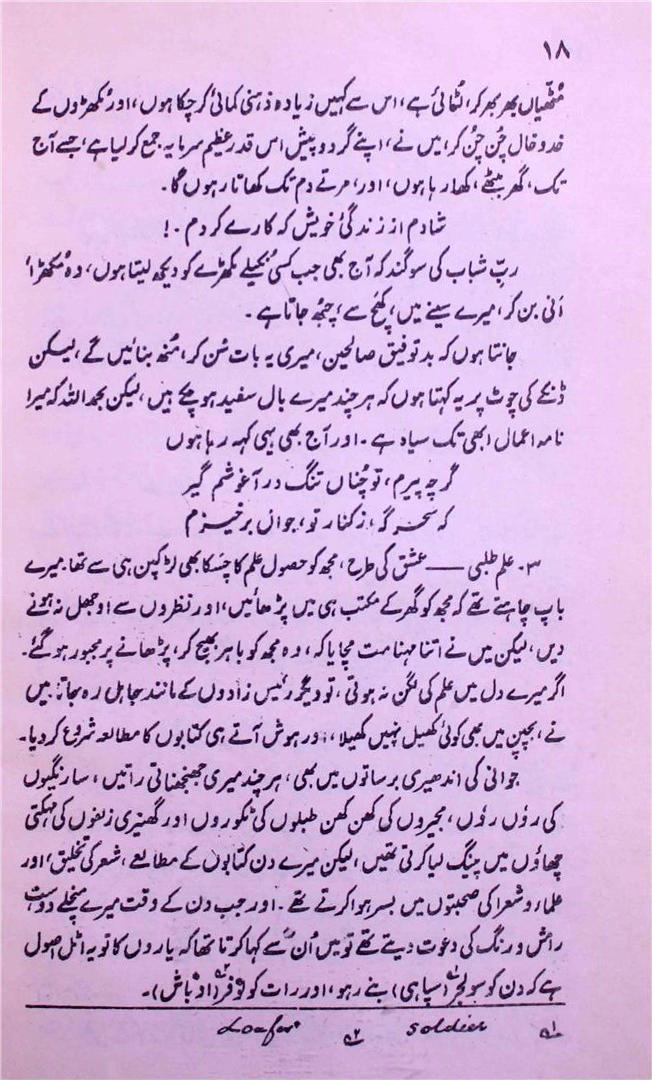 ۱۸
مُٹھیاں بھر بھر کر، لُٹائی ہے، اس سے کہیں زیادہ ذہنی کمائی کر چکا ہوں، اور مُکھڑوں کے
خدو خال چُن چُن کر، میں نے، اپنے گرد و پیش اس قدر عظیم سرمایہ جمع کر لیا ہے، جسے آج
تک، گھر بیٹھے، کھا رہا ہوں، اور، مرتے دم تک کھاتا رہوں گا۔
شادم از زندگیٔ خویش کہ کارے کردم۔!
ربِّ شباب کی سوگند کہ آج بھی جب کسی نکیلے مکھڑے کو دیکھ لیتا ہوں، وہ مُکھڑا
اَنی بن کر، میرے سینے میں، کھَچ سے، چبھ جاتا ہے۔
جانتا ہوں کہ بد توفیق صالحین، میری یہ بات سُن کر، مُنھ بنائیں گے، لیکن
ڈنکے کی چوٹ پر یہ کہتا ہوں کہ ہر چند میرے بال سفید ہو چکے ہیں، لیکن بحمد اللہ کہ میرا
نامہ اعمال ابھی تک سیاہ ہے۔ اور آج بھی یہی کہہ رہا ہوں
گر چہ پیرم، تو چُناں تنگ در آغوشم گیر
کہ سحر گہ، ز کنارِ تو، جواں بر خیزم
۳۔ علم طلبی —— عشق کی طرح، مجھ کو حصولِ علم کا چسکا بھی لڑکپن ہی سے تھا۔ میرے
باپ چاہتے تھے کہ مجھ کو گھر کے مکتب ہی میں پڑھائیں، اور نظروں سے اوجھل نہ ہونے
دیں، لیکن میں نے اتنا مہنامت مچایا کہ، وہ مجھ کو باہر بھیج کر، پڑھانے پر مجبور ہو گئے۔
اگر میرے دل میں علم کی لگن نہ ہوتی، تو دیگر رئیس زادوں کے مانند جاہل رہ جاتا۔ میں
نے، بچپن میں بھی کوئی کھیل نہیں کھیلا، اور ہوش آتے ہی کتابوں کا مطالعہ شروع کر دیا۔
جوانی کی اندھیری برساتوں میں بھی، ہر چند میری جھنجھناتی راتیں، سارنگیوں
کی رُوں رُوں، مجیروں کی کھن کھن طبلوں کی ٹکوروں اور گھنیری زلفوں کی مہکتی
چھاؤں میں پینگ لیا کرتی تھیں، لیکن میرے دن کتابوں کے مطالعے، شعر کی تخلیق، اور
علماء و شعرا کی صحبتوں میں بسر ہوا کرتے تھے۔ اور جب دن کے وقت میرے منچلے دوست
رامش و رنگ کی دعوت دیتے تھے تو میں اُن سے کہا کرتا تھا کہ یاروں کا تو یہ اٹل اصول
ہے کہ دن کو سولجر۱ (سپاہی) بنے رہو، اور رات کو لوفر۲ (اوباش)۔
۱ soldier ۲ Loafer